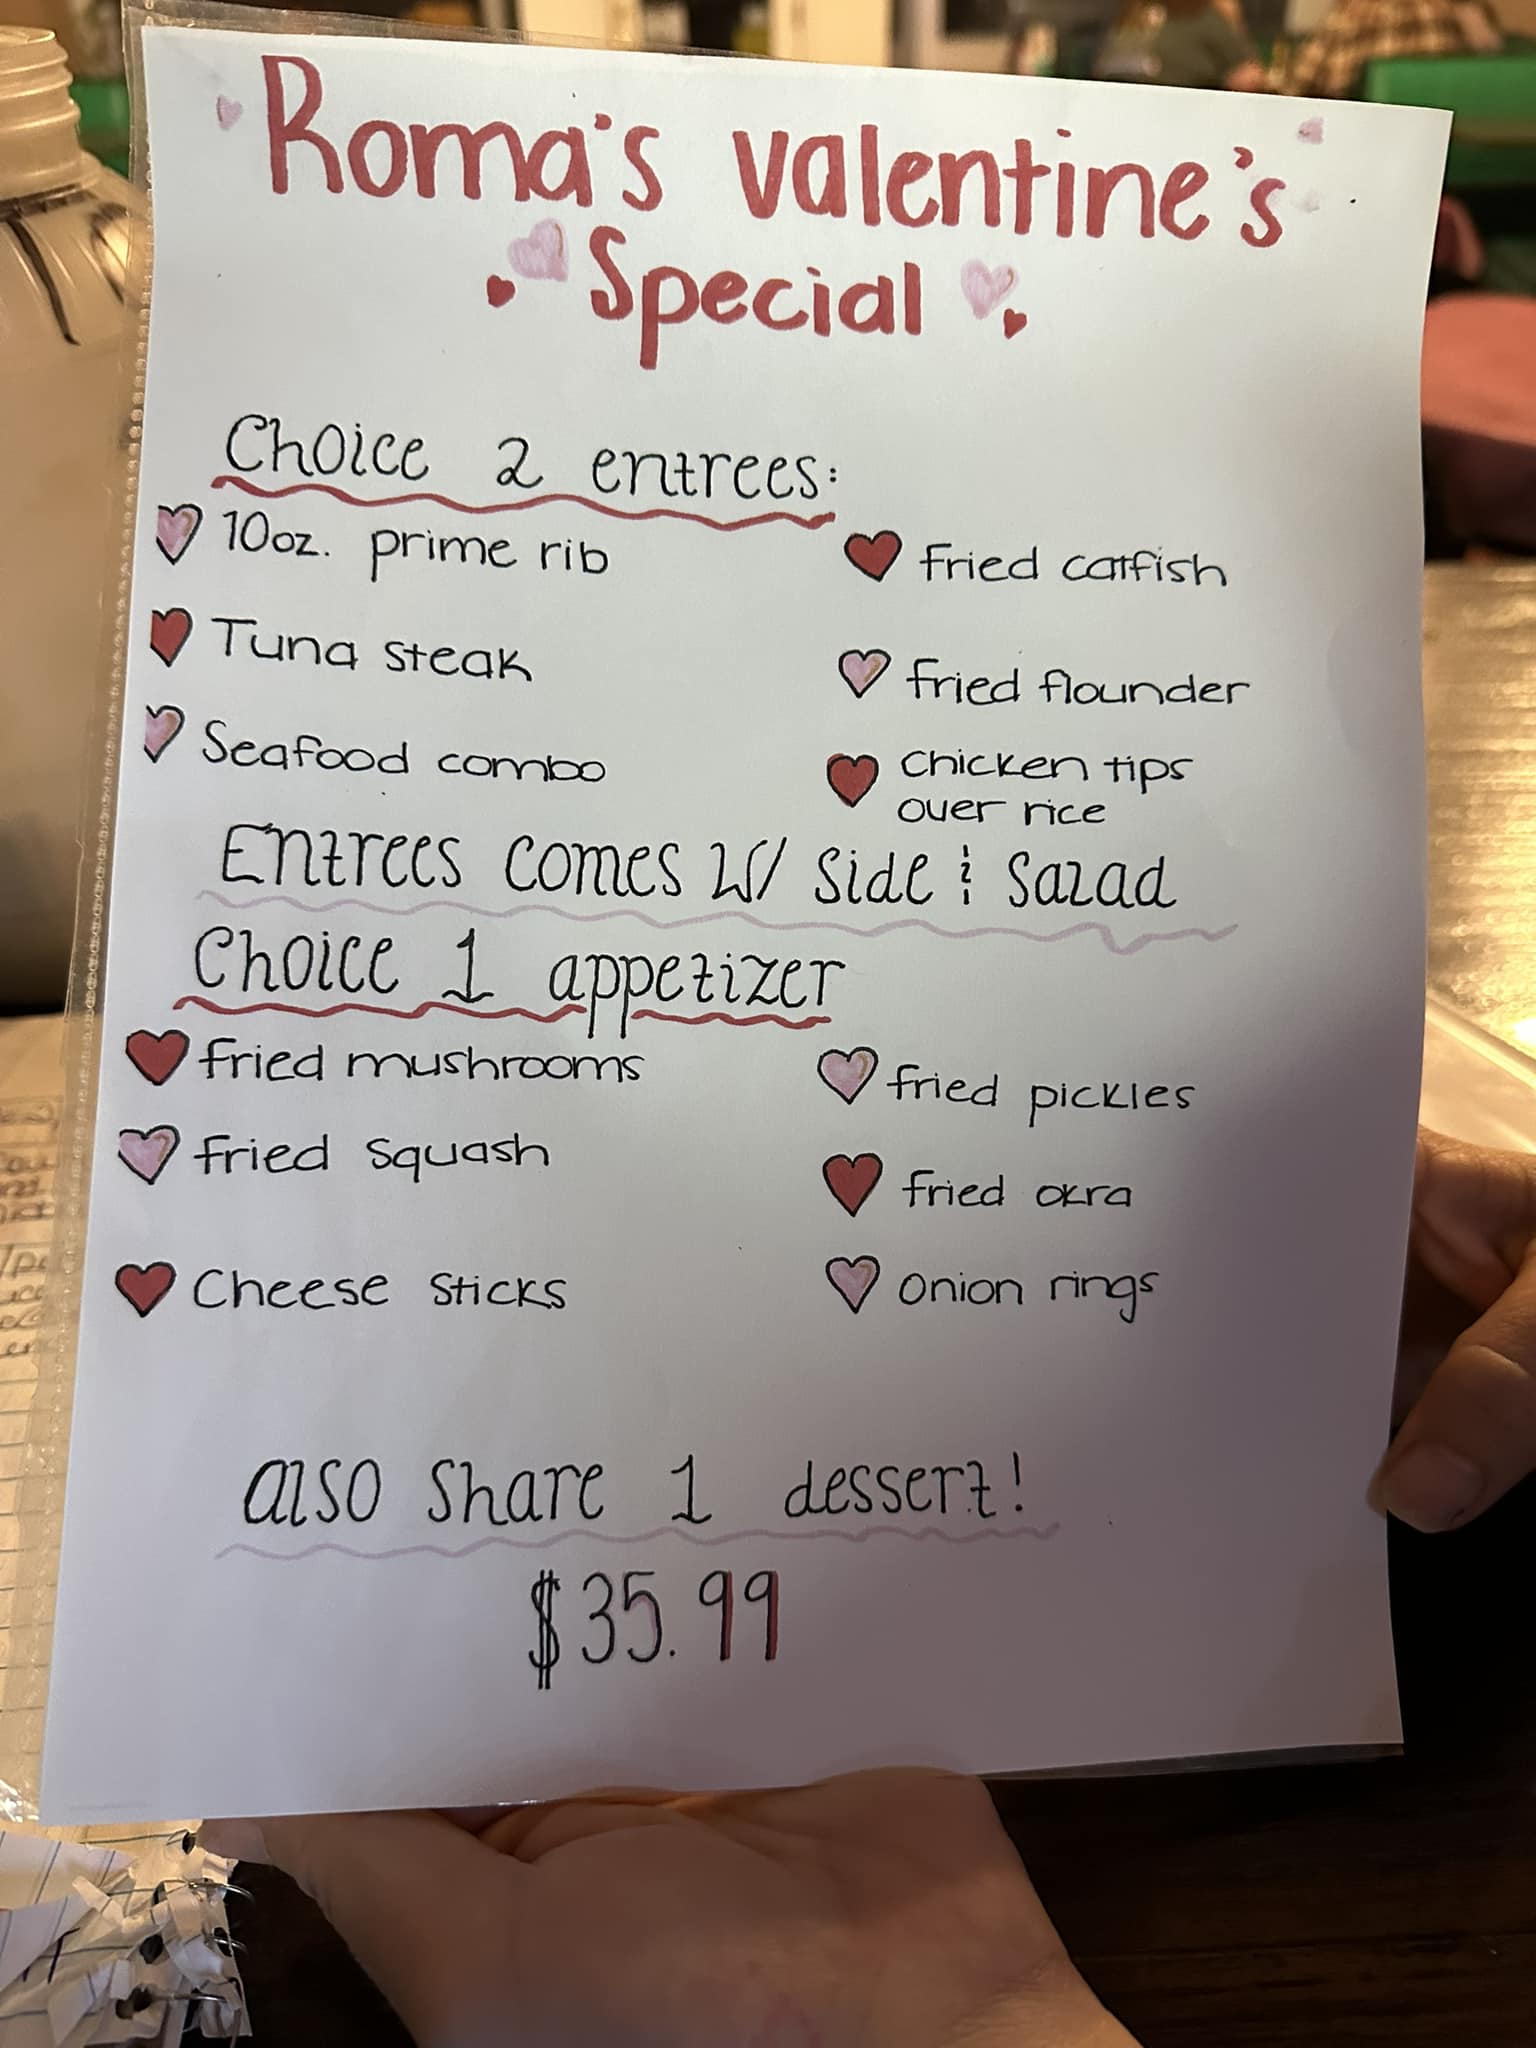 Roma's Valentine's
Special
Choice 2 entrees:
10oz. prime rib
Tuna steak
Seafood combo
fried catfish
fried flounder
Chicken tips
over rice
Entrees comes w/ side & salad
Choice 1 appetizer
fried mushrooms
fried squash
Cheese sticks
fried pickles
fried okra
onion rings
also share 1 dessert!
$35.99